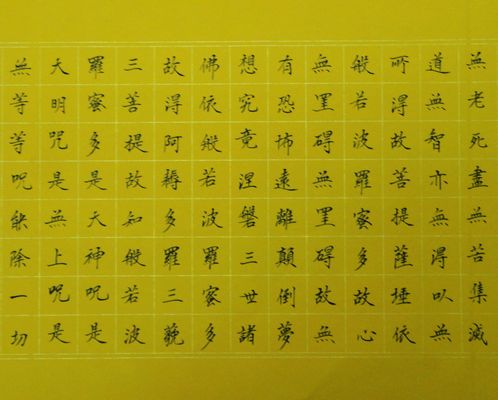 無老死盡無苦集滅
道無智亦無得以無
所得故菩提薩埵依
般若波羅蜜多故心
無罣礙無罣礙故無
有恐怖遠離顛倒夢
想究竟涅槃三世諸
佛依般若波羅蜜多
故得阿耨多羅三藐
三菩提故知般若波
羅蜜多是大神呪是
大明呪是無上呪是
無等等呪能除一切